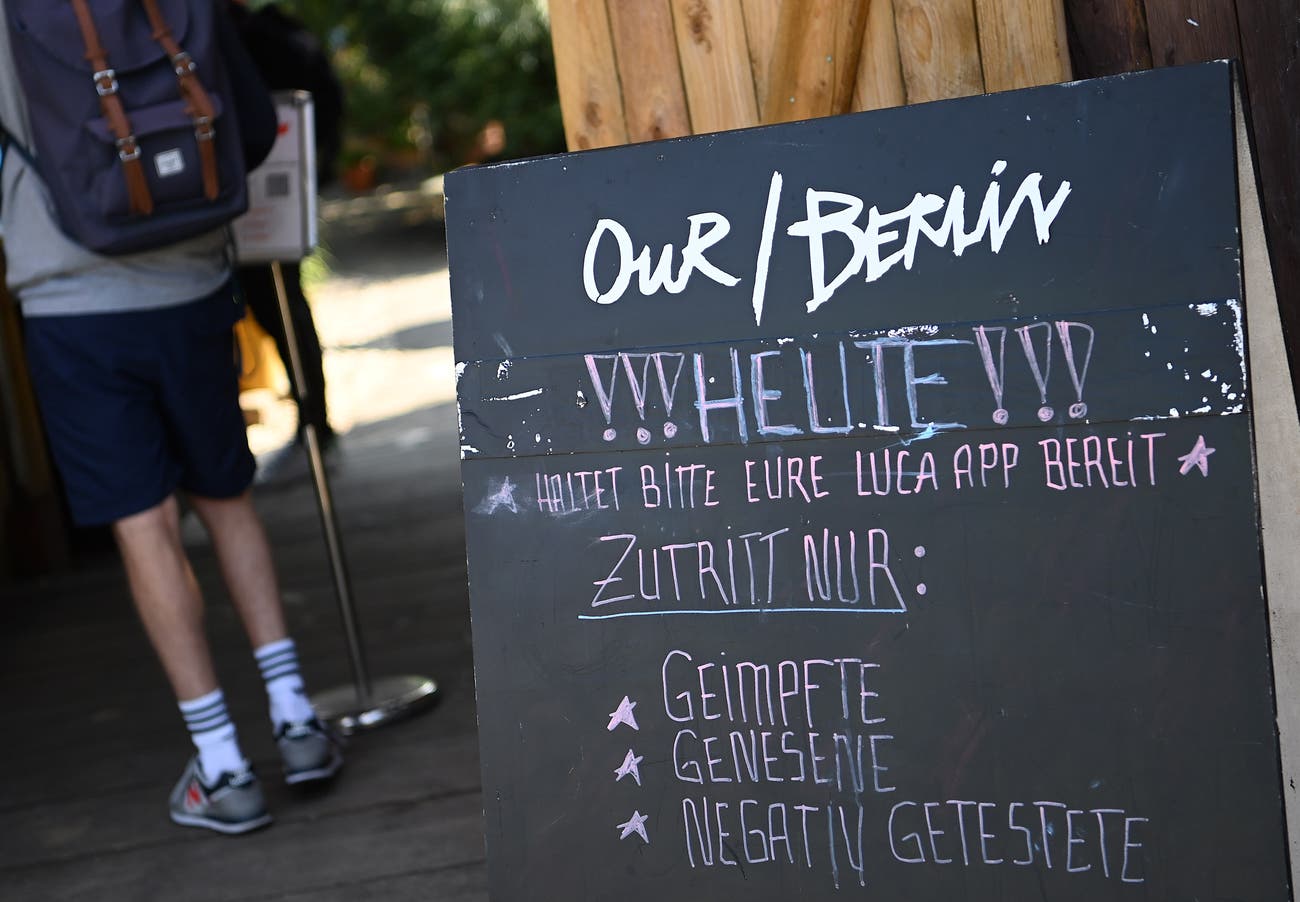 OUR/BERLIN
!!! HEUTE !!!
HALTET BITTE EURE LUCA APP BEREIT
ZUTRITT NUR:
GEIMPFTE
GENESENE
NEGATIV GETESTETE